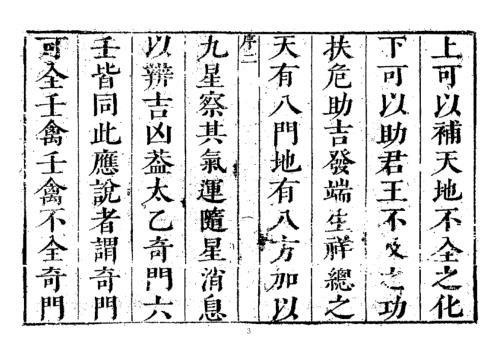 上可以補天地不全之化
下可以助君王不及之功
扶危助吉發端生祥總之
天有八門地有八方加以
序二
九星察其氣運隨星消息
以辨吉凶葢太乙奇門六
壬皆同此應說者謂奇門
可全壬禽壬禽不全奇門
3